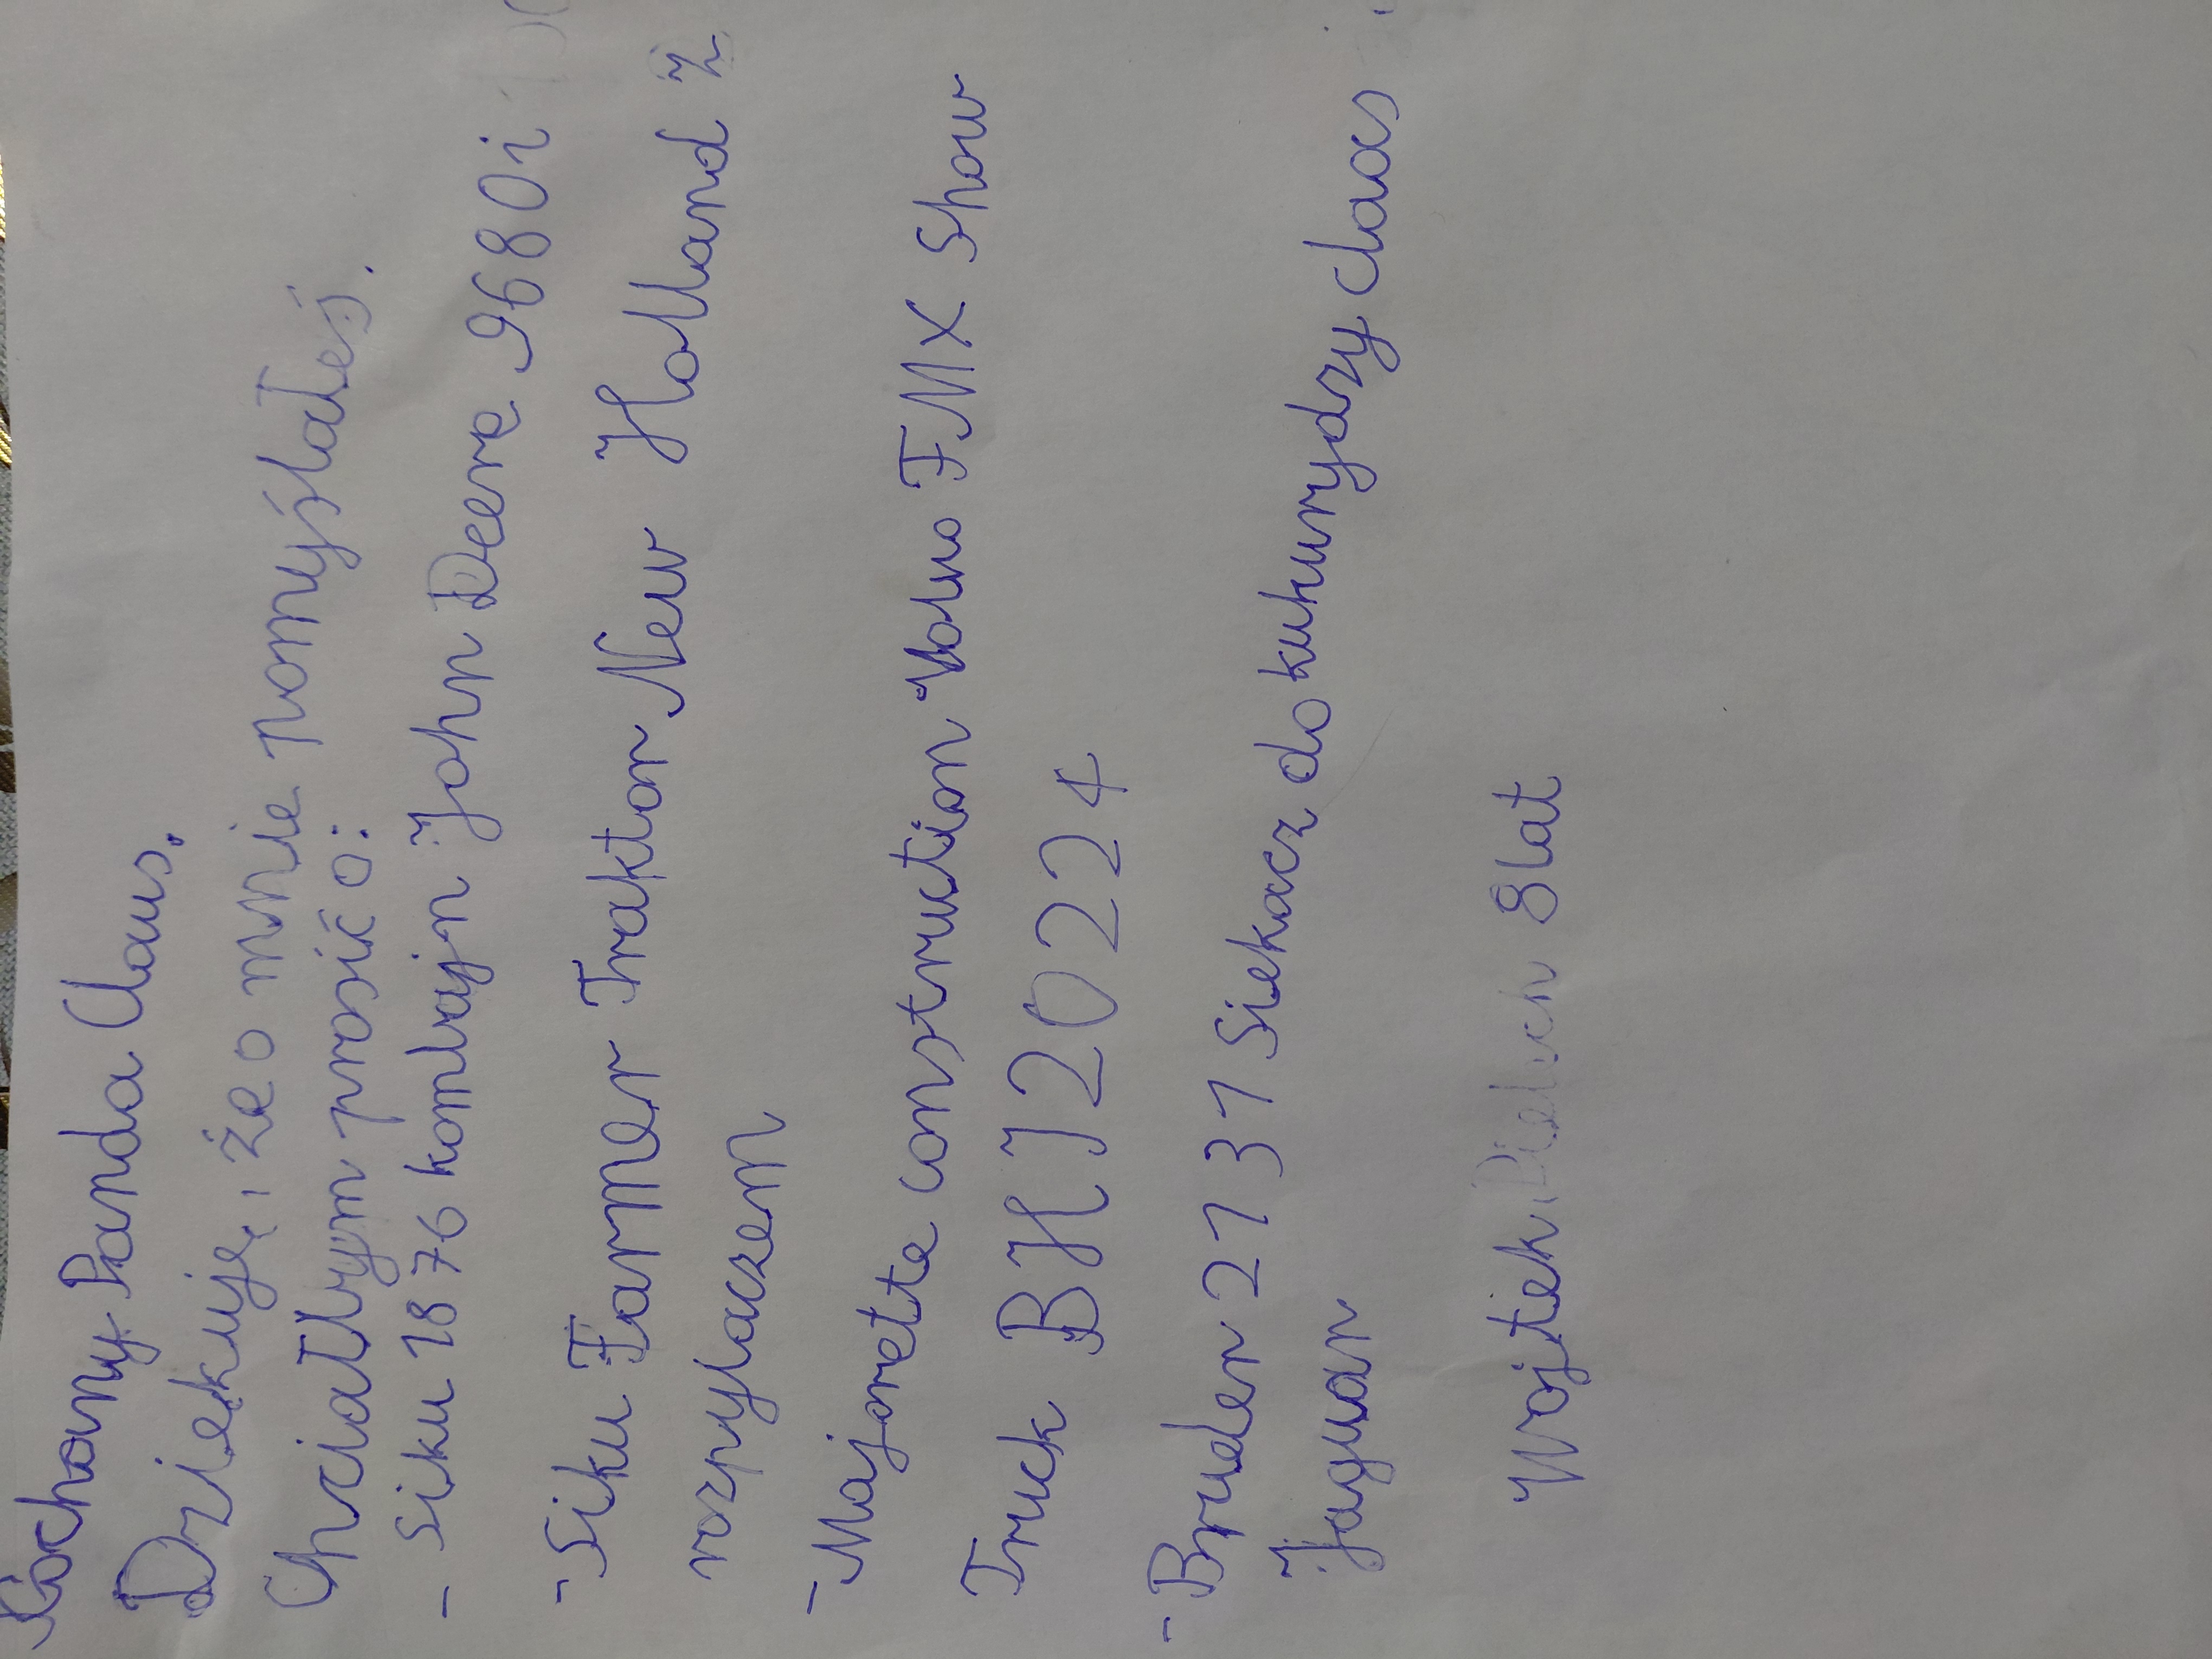 Kochany Panda Claus.
Dziekuję, że o mnie pomyślałeś.
Chciałbym prosić o:
- Siku 1876 kombajn John Deere 9680i
- Siku Farmer Traktor New Holland z
rozpylaczem
- Majorette construction Volvo FMX Show
Truck BHJ20224
- Bruder 2131 Siekacz do kukurydzy claas
Jaguar
Wojtek 8 lat